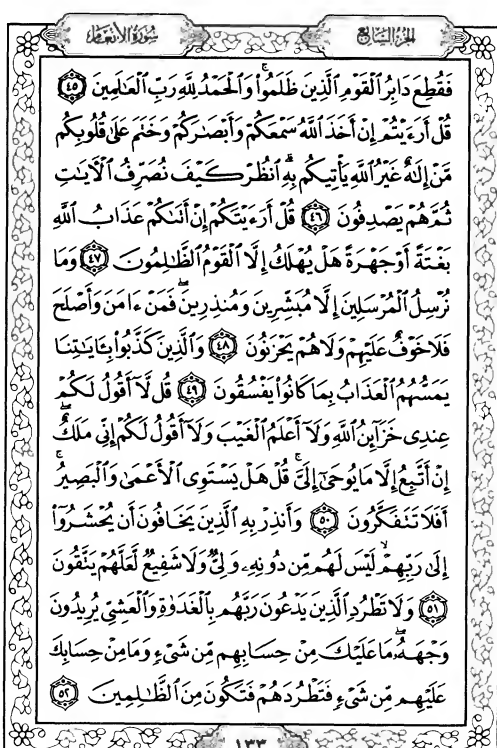 سُورَةُ الأَنعَام
الجُزْءُ السَّابِع
فَقُطِعَ دَابِرُ ٱلْقَوْمِ ٱلَّذِينَ ظَلَمُوا۟ ۚ وَٱلْحَمْدُ لِلَّهِ رَبِّ ٱلْعَٰلَمِينَ ٤٥
قُلْ أَرَءَيْتُمْ إِنْ أَخَذَ ٱللَّهُ سَمْعَكُمْ وَأَبْصَٰرَكُمْ وَخَتَمَ عَلَىٰ قُلُوبِكُم
مَّنْ إِلَٰهٌ غَيْرُ ٱللَّهِ يَأْتِيكُم بِهِ ۗ ٱنظُرْ كَيْفَ نُصَرِّفُ ٱلْءَايَٰتِ
ثُمَّ هُمْ يَصْدِفُونَ ٤٦ قُلْ أَرَءَيْتَكُمْ إِنْ أَتَىٰكُمْ عَذَابُ ٱللَّهِ
بَغْتَةً أَوْ جَهْرَةً هَلْ يُهْلَكُ إِلَّا ٱلْقَوْمُ ٱلظَّٰلِمُونَ ٤٧ وَمَا
نُرْسِلُ ٱلْمُرْسَلِينَ إِلَّا مُبَشِّرِينَ وَمُنذِرِينَ ۖ فَمَنْ ءَامَنَ وَأَصْلَحَ
فَلَا خَوْفٌ عَلَيْهِمْ وَلَا هُمْ يَحْزَنُونَ ٤٨ وَٱلَّذِينَ كَذَّبُوا۟ بِـَٔايَٰتِنَا
يَمَسُّهُمُ ٱلْعَذَابُ بِمَا كَانُوا۟ يَفْسُقُونَ ٤٩ قُل لَّآ أَقُولُ لَكُمْ
عِندِى خَزَآئِنُ ٱللَّهِ وَلَآ أَعْلَمُ ٱلْغَيْبَ وَلَآ أَقُولُ لَكُمْ إِنِّى مَلَكٌ ۖ
إِنْ أَتَّبِعُ إِلَّا مَا يُوحَىٰٓ إِلَىَّ ۚ قُلْ هَلْ يَسْتَوِى ٱلْأَعْمَىٰ وَٱلْبَصِيرُ ۚ
أَفَلَا تَتَفَكَّرُونَ ٥٠ وَأَنذِرْ بِهِ ٱلَّذِينَ يَخَافُونَ أَن يُحْشَرُوٓا۟
إِلَىٰ رَبِّهِمْ ۙ لَيْسَ لَهُم مِّن دُونِهِۦ وَلِىٌّ وَلَا شَفِيعٌ لَّعَلَّهُمْ يَتَّقُونَ
٥١ وَلَا تَطْرُدِ ٱلَّذِينَ يَدْعُونَ رَبَّهُم بِٱلْغَدَوٰةِ وَٱلْعَشِىِّ يُرِيدُونَ
وَجْهَهُۥ ۖ مَا عَلَيْكَ مِنْ حِسَابِهِم مِّن شَىْءٍ وَمَا مِنْ حِسَابِكَ
عَلَيْهِم مِّن شَىْءٍ فَتَطْرُدَهُمْ فَتَكُونَ مِنَ ٱلظَّٰلِمِينَ ٥٢
١٣٣